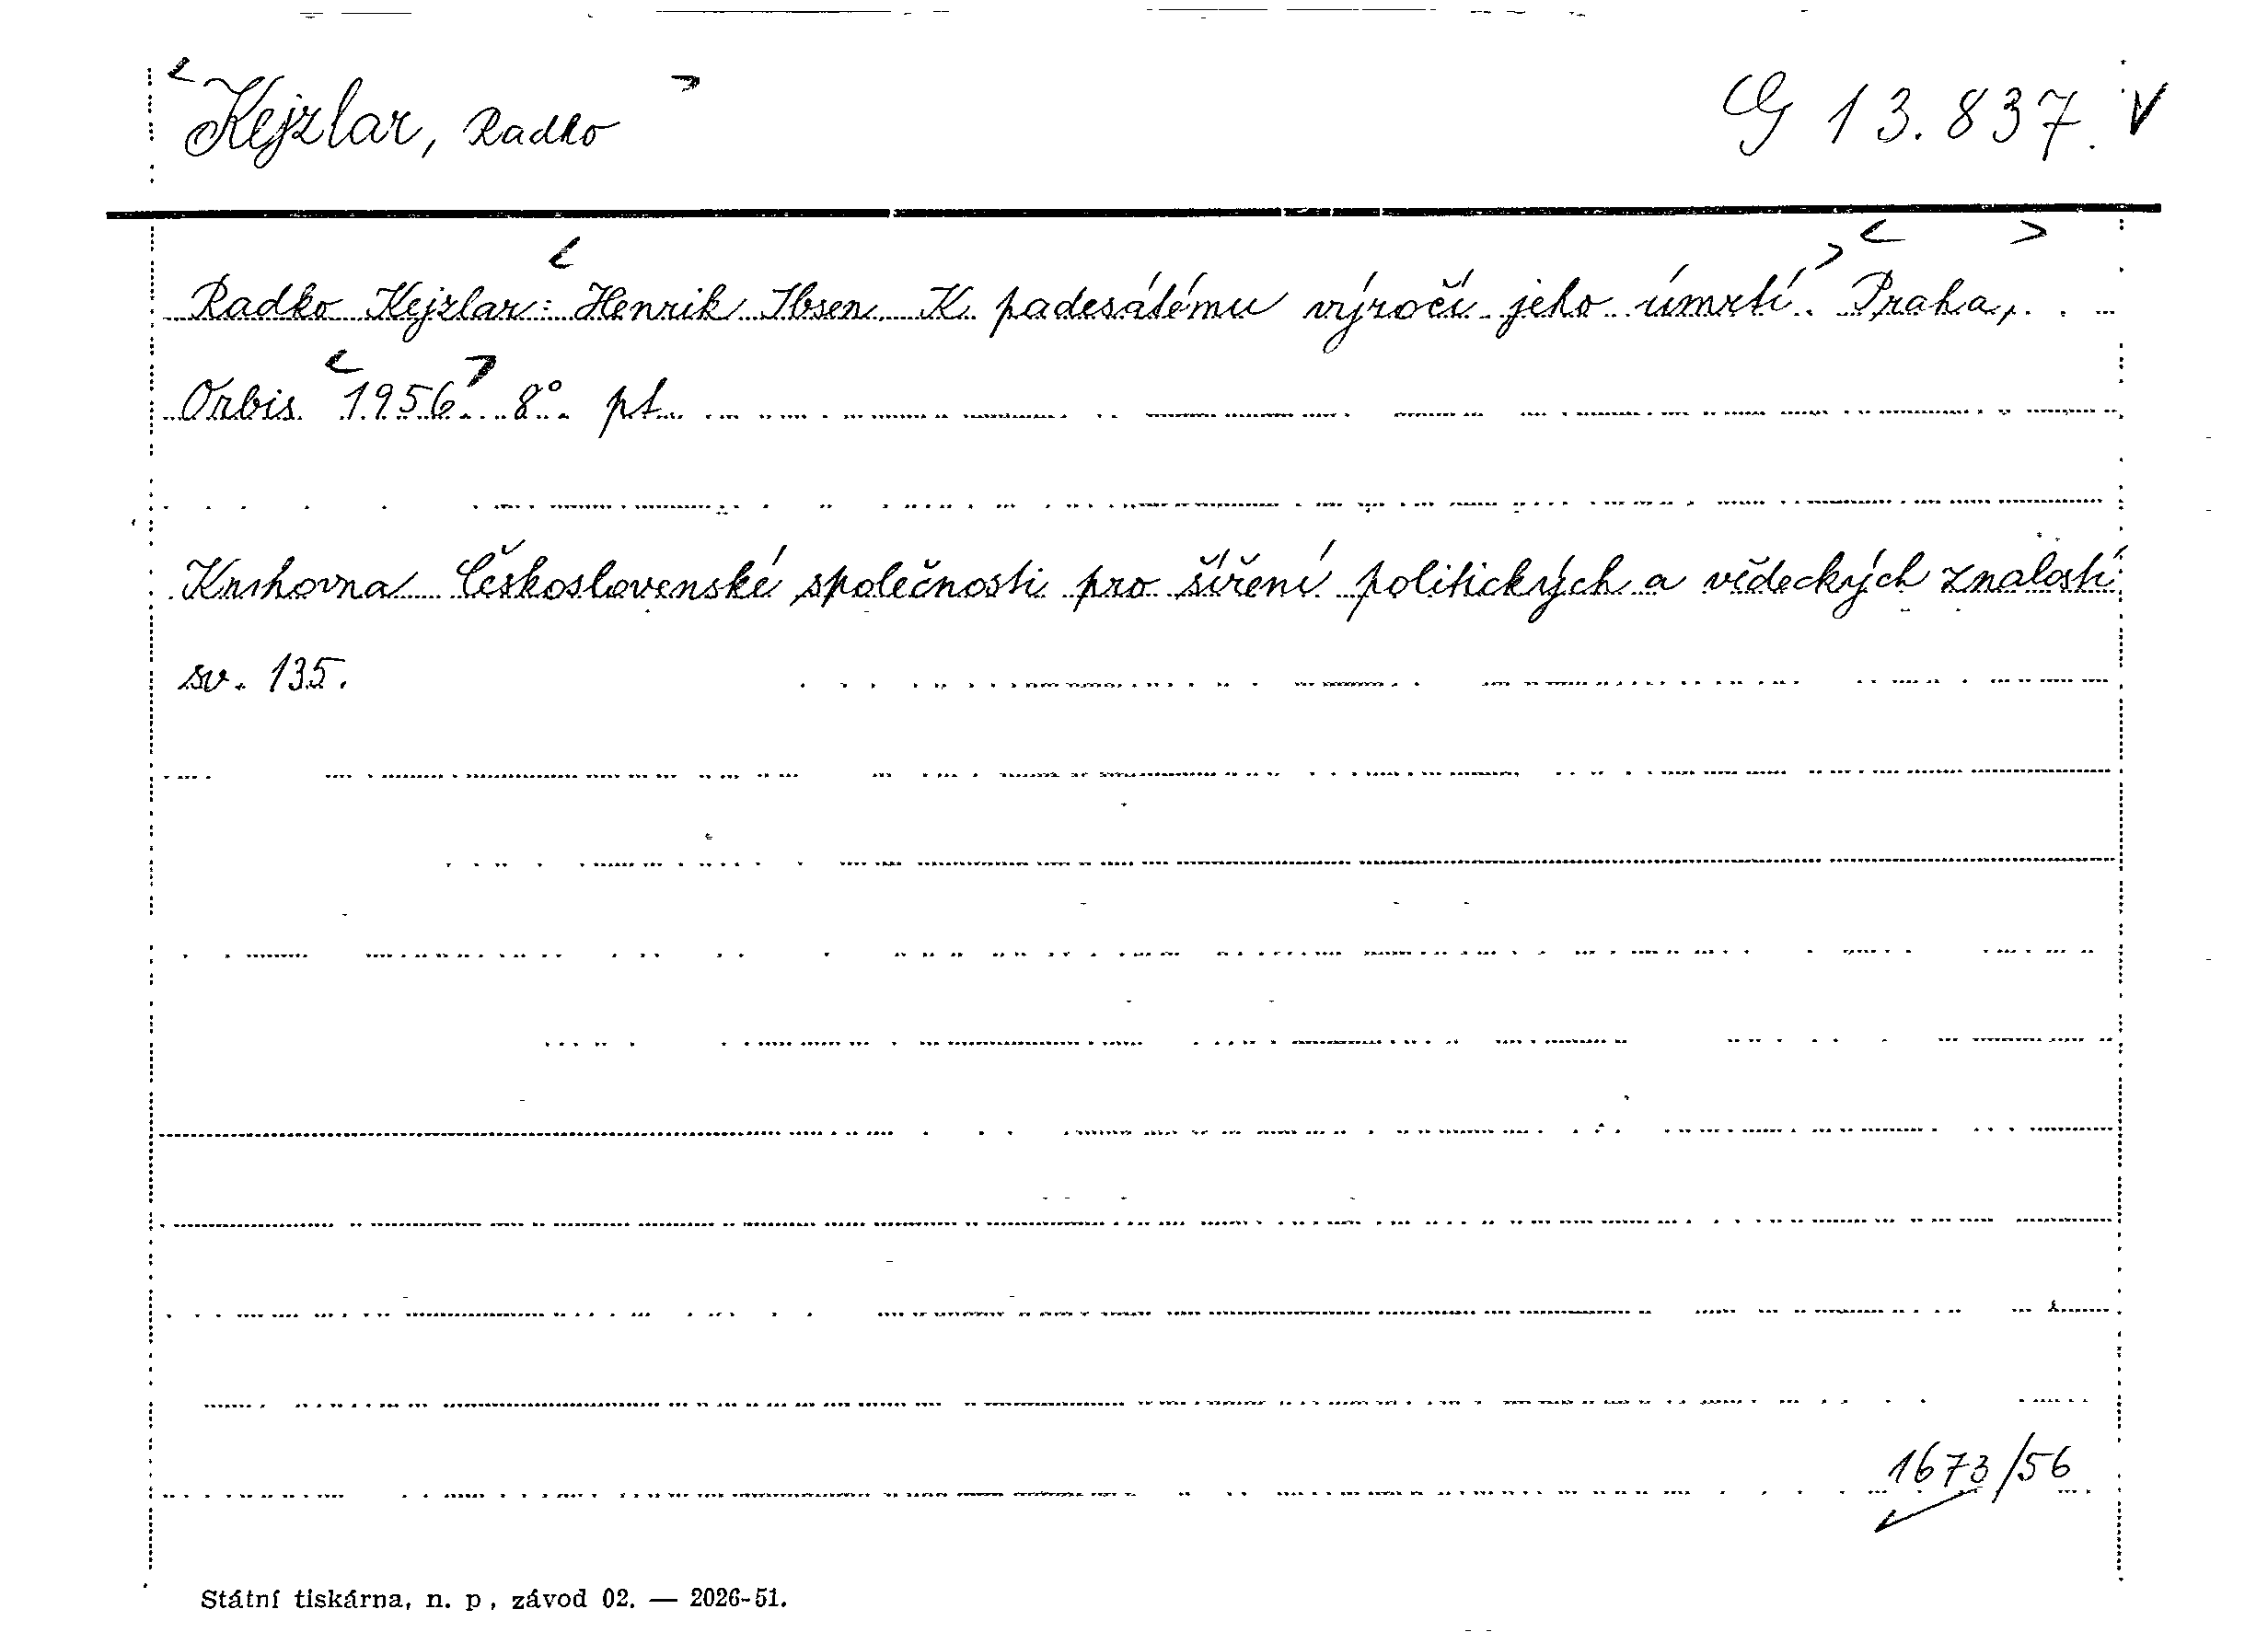 Kejzlar, Radko
G 13.837. V
Radko Kejzlar: Henrik Ibsen. K padesátému výročí jeho úmrtí. Praha,
Orbis 1956. 8°. pt.
Knihovna Československé společnosti pro šíření politických a vědeckých znalostí
sv. 135.
1673/56
Státní tiskárna, n. p, závod 02. — 2026-51.